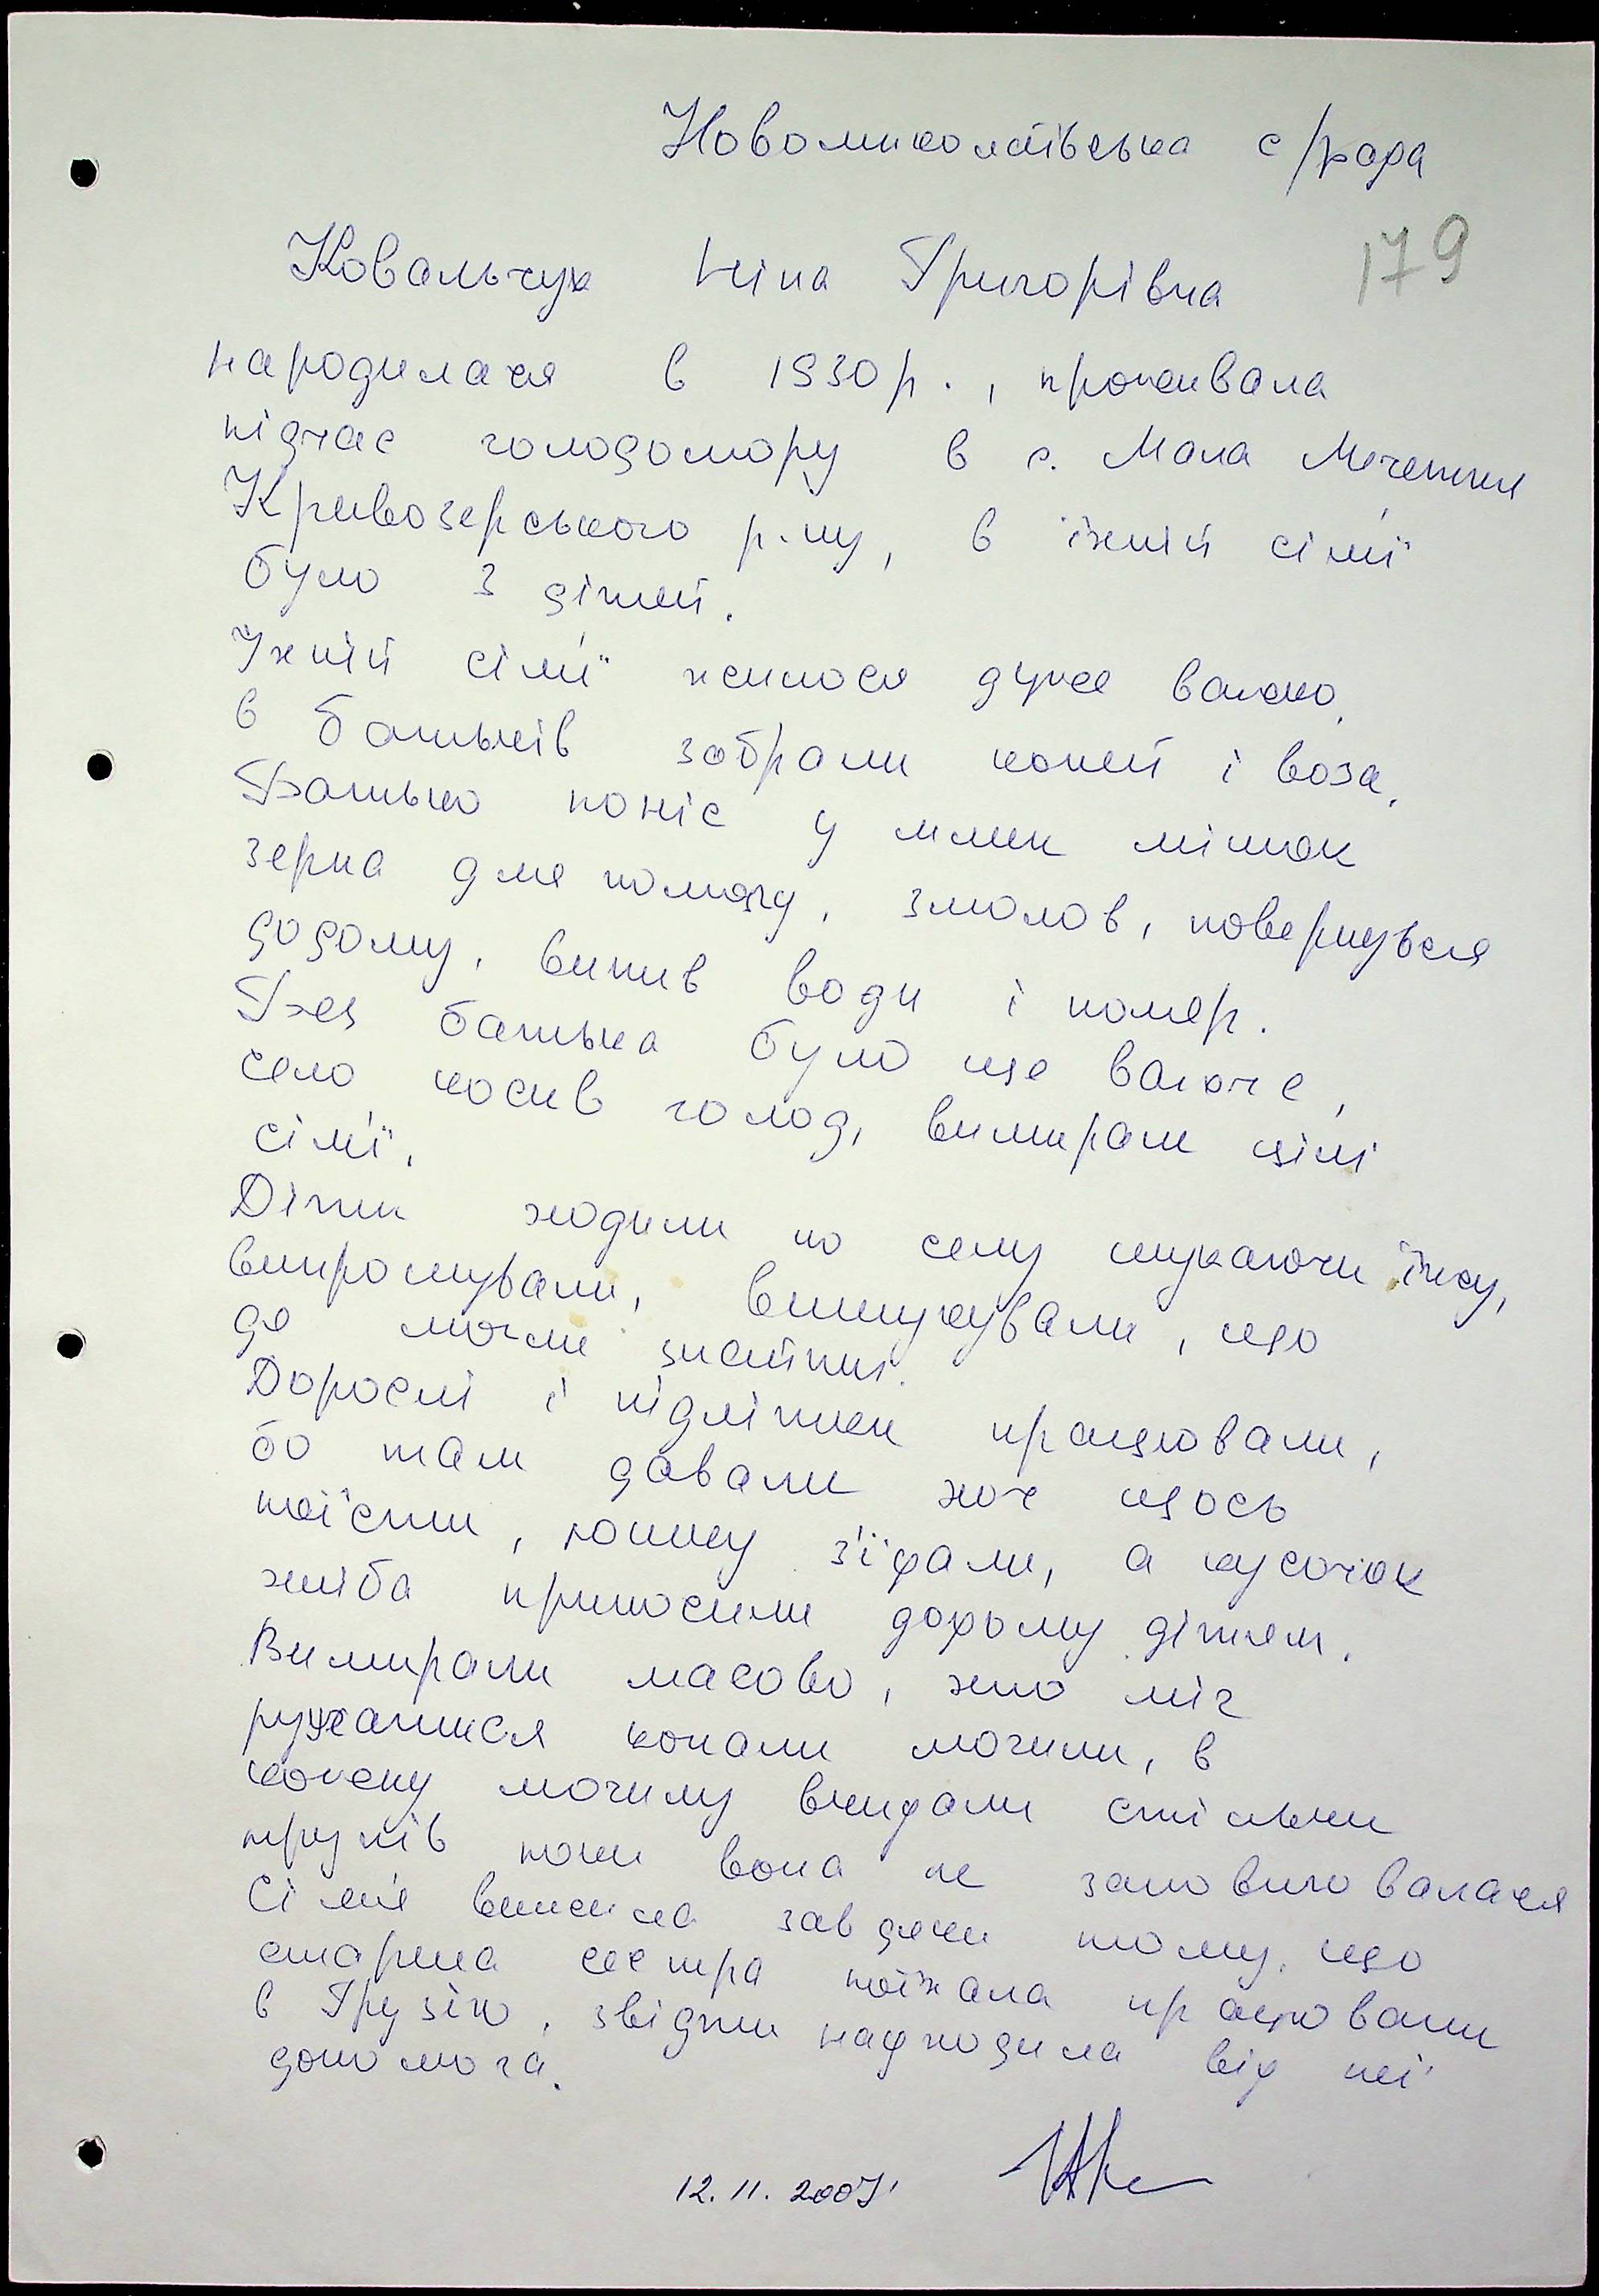 Новомиколаївська с/рада
179
Ковальчук Ніна Григорівна
народилася в 1930р., проживала
підчас голодомору в с. Мала Мечетня
Кривозерського р-ну, в їхній сім'ї
було 3 дітей.
Їхній сім'ї жилося дуже важко,
в батьків забрали коней і воза.
Батько поніс у млин мішок
зерна для помолу, змолов, повернувся
додому, випив води і помер.
Без батька було ще важче,
село косив голод, вимирали цілі
сім'ї.
Дітки ходили по селу шукаючи їжу,
випрошували, вишукували, що
де могли знайти.
Дорослі і підлітки працювали,
бо там давали хоч щось
поїсти, юшку з'їдали, а кусочок
хліба приносили додому дітям.
Вимирали масово, хто міг
рухатися копали могили, в
кожну могилу вкидали стільки
трупів поки вона не заповнювалася
Сім'я вижила завдяки тому, що
старша сестра поїхала працювати
в Грузію, звідти надходила від неї
допомога.
12.11.2007